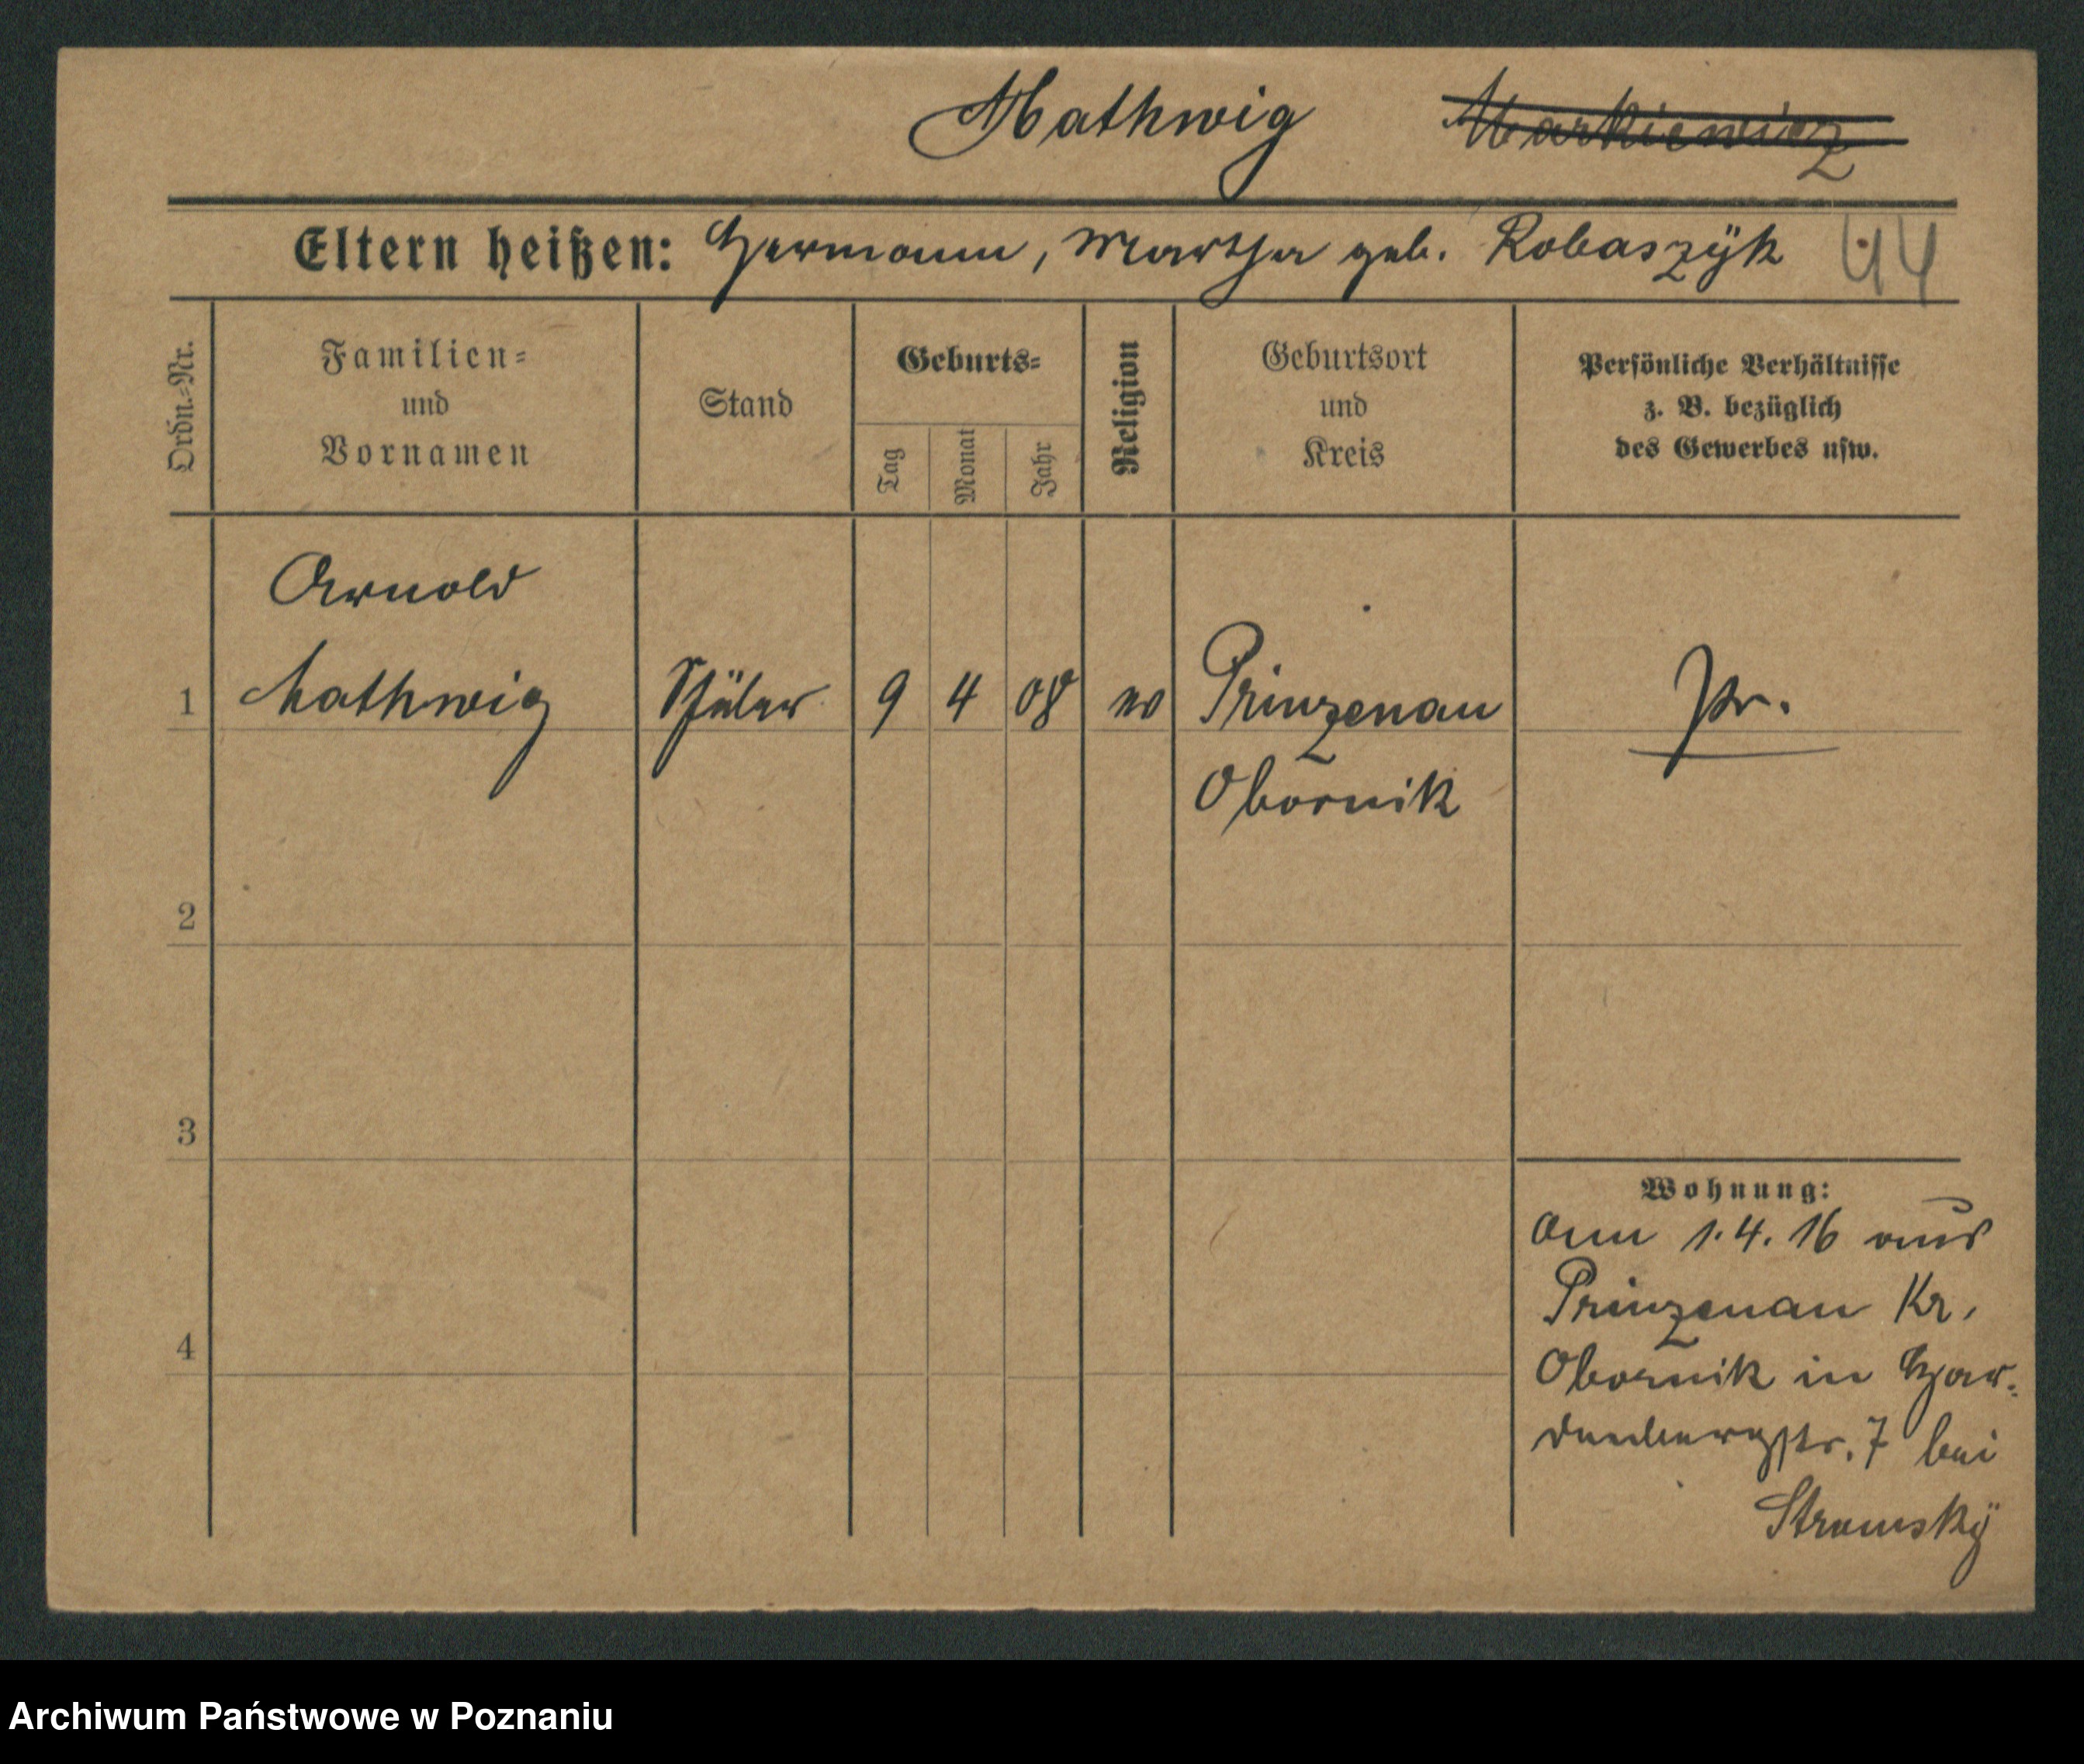 Mathwig Markiewicz
Eltern heißen: Hermann, Martha geb. Robaszÿk 44
Ordn.-Nr.
Familien-
und
Vornamen
Stand
Geburts-
Tag
Monat
Jahr
Religion
Geburtsort
und
Kreis
Persönliche Verhältnisse
z. B. bezüglich
des Gewerbes usw.
Arnold
1 Mathwig Schüler 9 4 08 Prinzenau Pr.
Obornik
2
3
4
Wohnung:
Am 1.4.16 aus
Prinzenau Kr.
Obornik in Har-
denbergstr. 7 bei
Stromskÿ
Archiwum Państwowe w Poznaniu